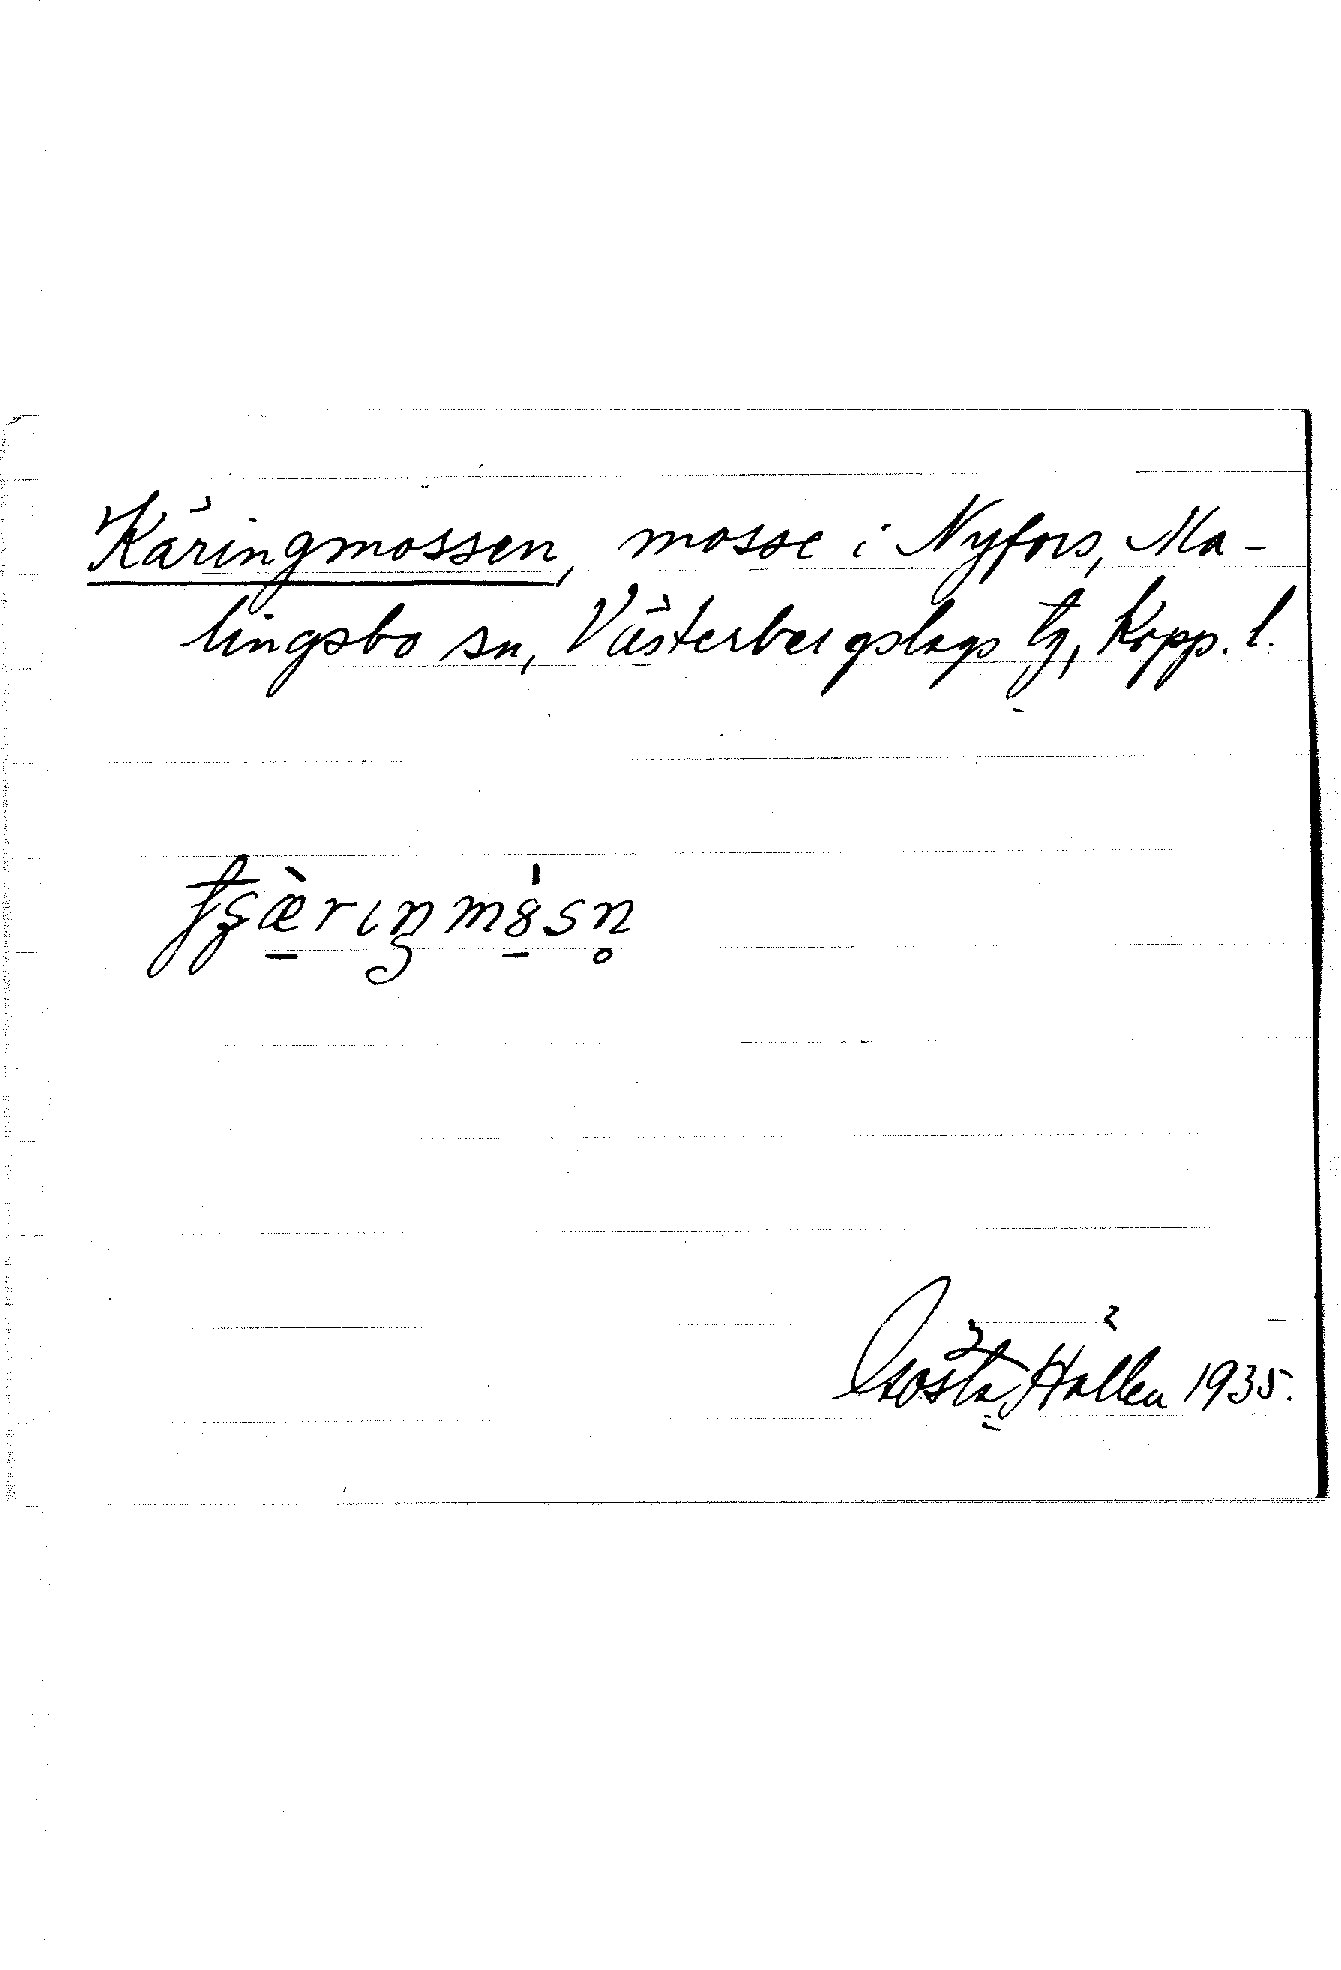 Käringmossen, mosse i Nyfors, Ma-
lingsbo sn, Västerbergslags tg, Kopp. l.
Gösta Hallén 1935.